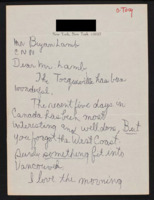 New York, New York 10023
Mr Bryan Lamb
CNN
Dear Mr Lamb.
The Tocqueville has been
wonderful.
The recent five days in
Canada has been most
interesting and well done, But
you forgot the West Coast.
something get into
Vancouver.
I love the morning